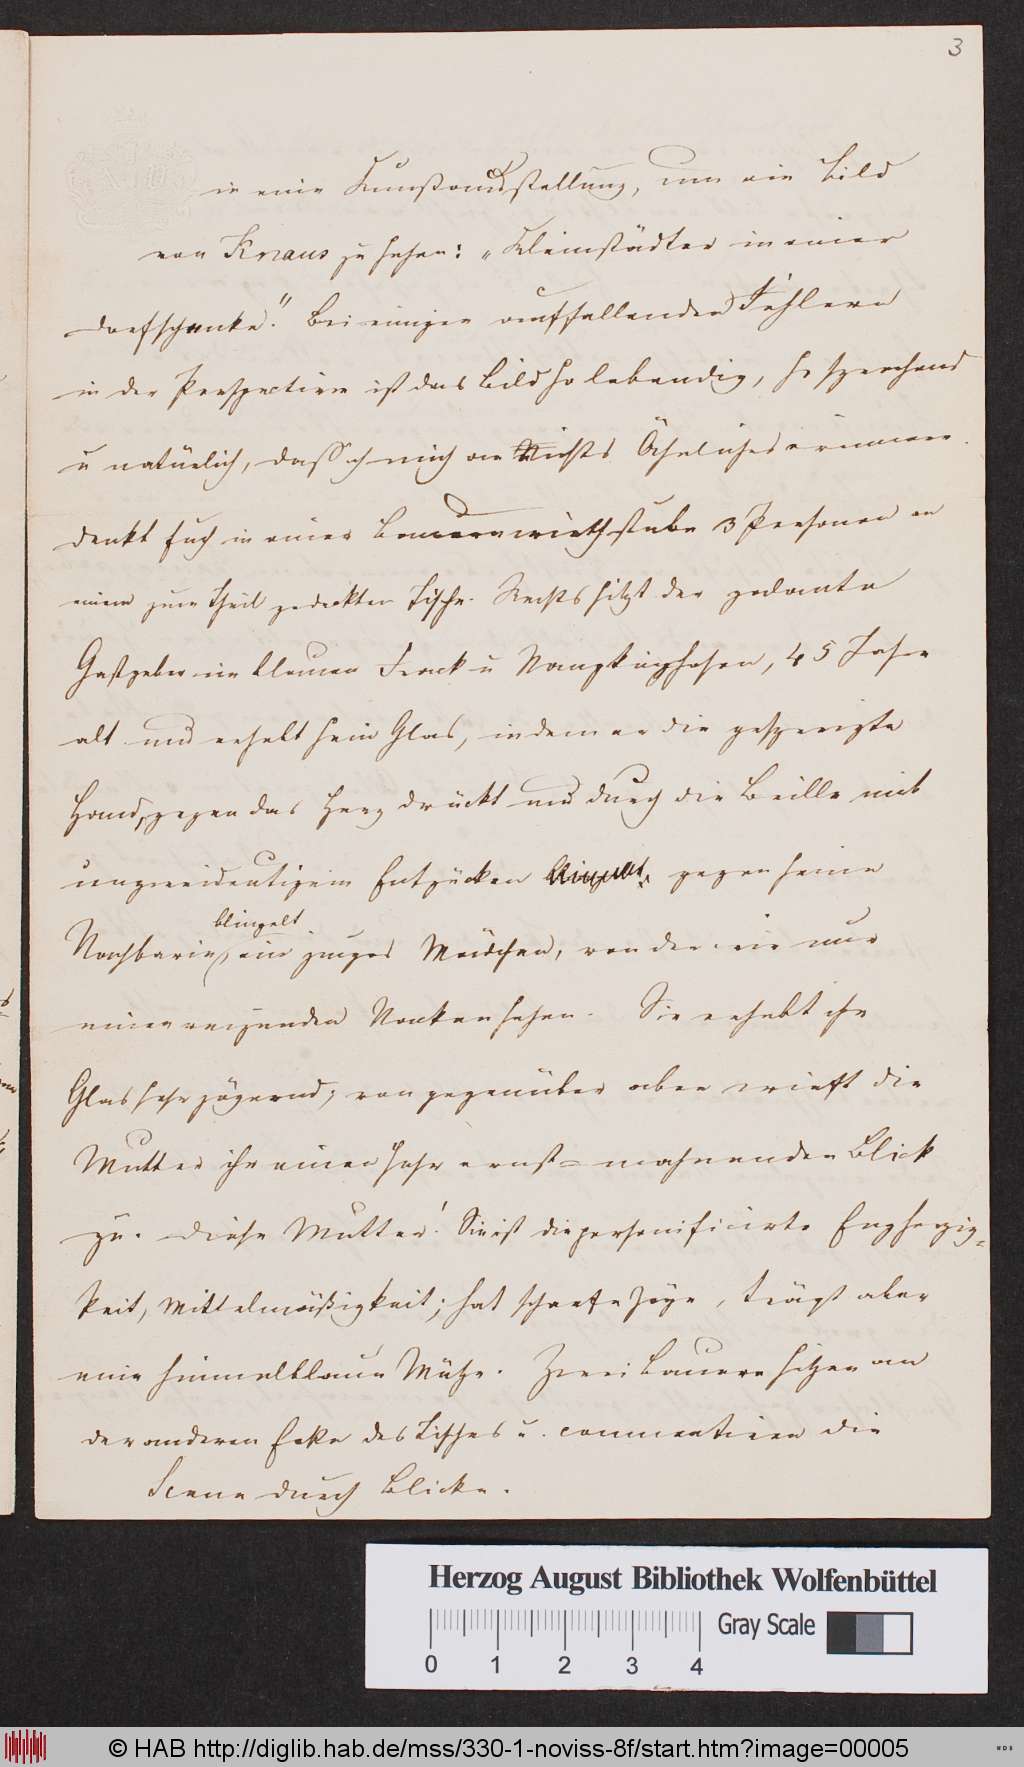 3
in eine Kunstausstellung, um ein Bild
von Knaus zu sehen: „Kleinstädter in einer
Dorfschenke." Bei einigen auffallenden Fehlern
in der Perspective ist das Bild so lebendig, so sprechend
u natürlich, dass ich mich an Nichts Ähnliches erinnere.
denkt Euch in einer Bauernwirthstube 3 Personen an
einem zum Theil gedeckten Tische. Rechts sitzt der galante
Gastgeber im blauen Frack u Nanghosen, 45 Jahre
alt und erhebt sein Glas, indem er die gespreizte
Hand gegen das Herz drückt und durch die Brille mit
unzweideutigem Entzücken gegen seine
blinzelt
Nachbarin, ein junges Mädchen, von der wir nur
einen reizenden Nacken sehen. Sie erhebt ihr
Glas sehr zögernd; von gegenüber aber wirft die
Mutter ihr einen sehr ernst-mahnenden Blick
zu. Diese Mutter! Sie ist die personificirte Engherzig-
keit, Mittelmäßigkeit; hat scharfe Züge, trägt aber
eine himmelblaue Mütze. Zwei Bauern sitzen an
der anderen Ecke des Tisches u. commentiren die
Scene durch Blicke.
Herzog August Bibliothek Wolfenbüttel
Gray Scale
0 1 2 3 4
© HAB http://diglib.hab.de/mss/330-1-noviss-8f/start.htm?image=00005